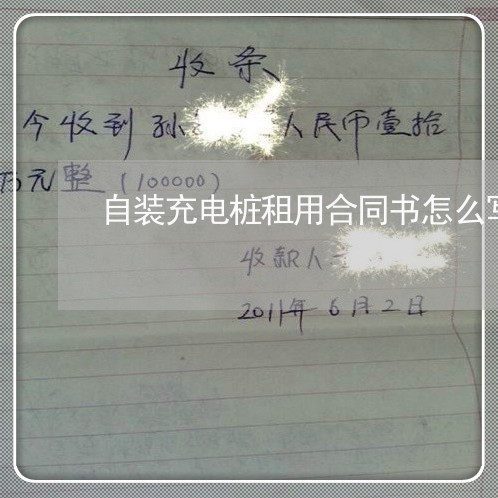 收条
今收到孙 人民币壹拾
万元整(100000)
自装充电桩租用合同书怎么写
收款人
2011年6月2日